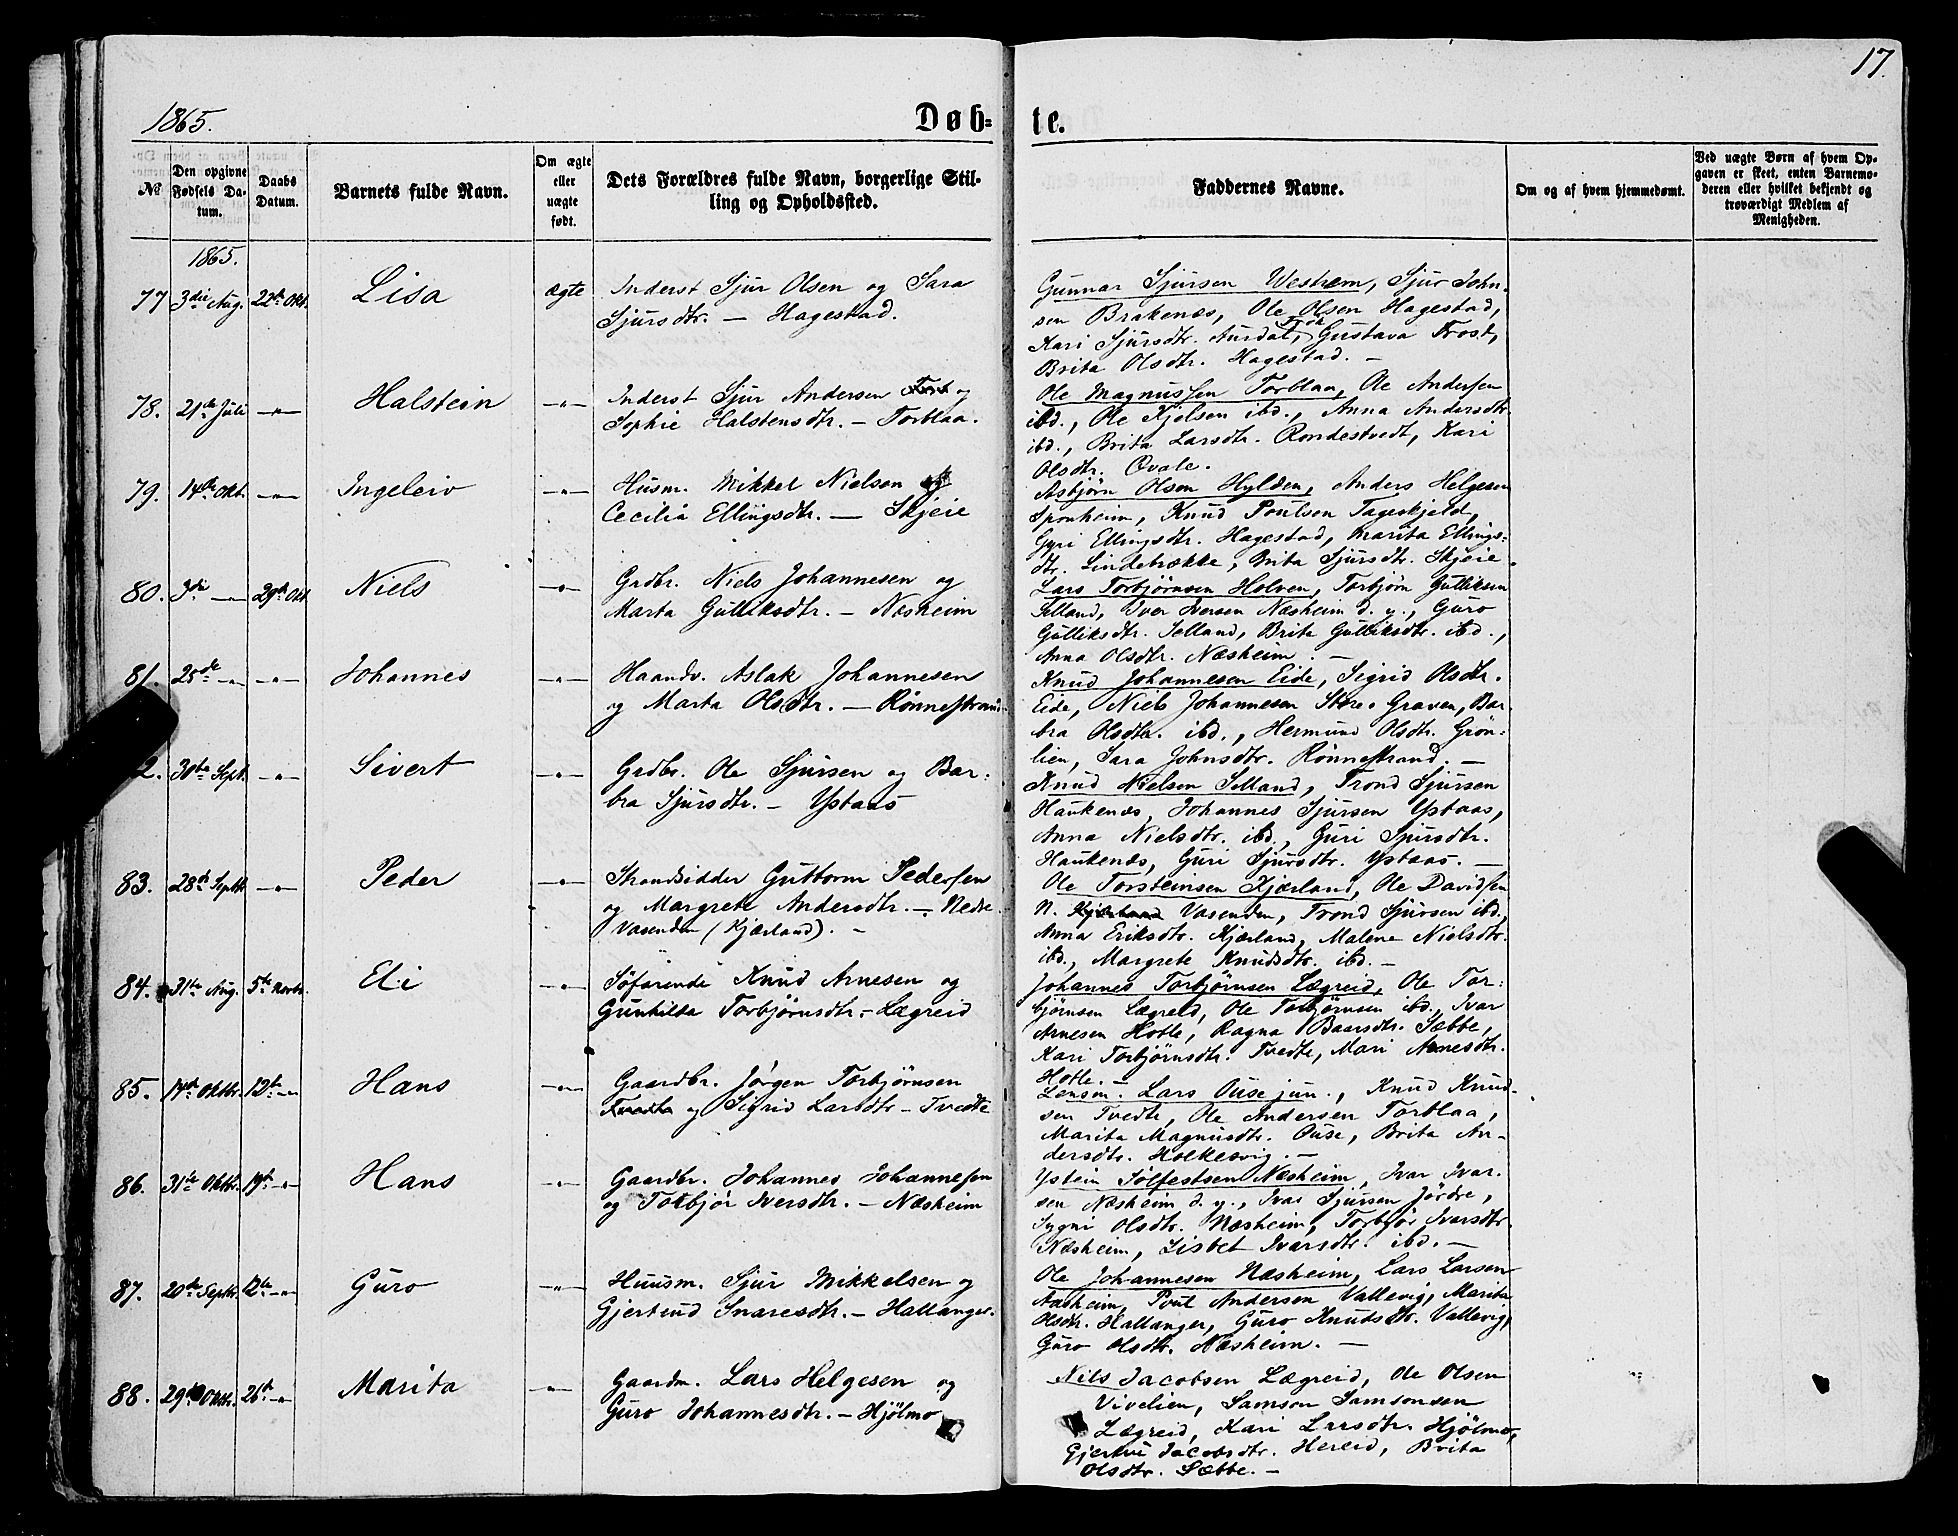 17.
1865.
Døb-
te.
№
Den opgivne Fødsels Datum.
Daabs Datum.
Barnets fulde Navn.
Om ægte eller uægte født.
Dets Forældres fulde Navn, borgerlige Stilling og Opholdssted.
Faddernes Navne.
Om og af hvem hjemmedømt.
Ved uægte Børn af hvem Opgaven er skeet, enten Barnemoderen eller hvilket bekjendt og troværdigt Medlem af Menigheden.
1865.
77 3die Aug. 22de Okt. Lisa ægte
Inderst Sjur Olsen og Sara
Sjursdtr. – Hagestad.
Gunnar Sjursen Westrem, Sjur John-
sen Brakenæs, Ole Olsen Hagestad,
Kari Sjursdtr. Aurdal, Frøk. Gustava Frost,
Brita Olsdtr. Hagestad. –
78. 21de Juli –„– Halstein –„–
Inderst Sjur Andersen og
Sophie Halstensdtr. – Torblaa.
Ole Magnussen Torblaa, Ole Andersen
ibd., Ole Kjelsen ibd., Anna Andersdtr.
ibd., Brita Larsdtr. Rondestvedt, Kari
Olsdtr. Qvale.
79. 14de Okt. –„– Ingeleiv –„–
Husm. Mikkel Nielsen og
Cecilia Ellingsdtr. – Skjeie
Asbjørn Olsen Hylden, Anders Helgesen
Sponheim, Knud Poulsen Tageskjeld,
Gyri Ellingsdtr. Hagestad, Marita Ellings-
dtr. Lindebrække, Brita Sjursdtr. Skjeie.
80. 3die –„– 29de Okt Niels –„–
Grdbr. Niels Johannesen og
Marta Gulliksdtr. – Næsheim
Lars Torbjørnsen Holven, Torbjørn Gulliksen
Selland, Iver Iversen Næsheim d. y., Guro
Gulliksdtr. Selland, Brita Gulliksdtr. ibd.,
Anna Olsdtr. Næsheim. –
81. 25de –„– –„– Johannes –„–
Haandv. Aslak Johannesen
og Marta Olsdtr. – Rønnestrand
Knud Johannesen Eide, Sigrid Olsdtr.
Eide, Niels Johannesen Store-Graven, Bar-
bra Olsdtr. ibd., Hermund Olsdtr. Grøn-
lien, Sara Johnsdtr. Rønnestrand. –
2. 30te Sept. –„– Sivert –„–
Grdbr. Ole Sjursen og Bar-
bra Sjursdtr. – Ystaas
Knud Nielsen Selland, Trond Sjursen
Haukenæs, Johannes Sjursen Ystaas,
Anna Nielsdtr. ibd., Guri Sjursdtr.
Haukenæs, Guri Sjursdtr. Ystaas. –
83. 28de Septbr. –„– Peder –„–
Strandsidder Guttorm Pedersen
og Margrete Andersdtr. – Nedre
Vasenden (Kjærland). –
Ole Torsteinsen Kjærland, Ole Davidsen
N. Kjærland Vasenden, Trond Sjursen ibd.,
Anna Eriksdtr. Kjærland, Malene Nielsdtr.
ibd., Margrete Knudsdtr. ibd. –
84. 31te Aug. 5te Novbr. Eli –„–
Søfarende Knud Arnesen og
Gunhilda Torbjørnsdtr. – Lægreid
Johannes Torbjørnsen Lægreid, Ole Tor-
bjørnsen Lægreid, Ole Torbjørnsen ibd., Ivar
Arnesen Hotle, Ragna Baarsdtr. Sæbbe,
Kari Torbjørnsdtr. Tvedte, Mari Arnesdtr.
Hotle. –
85. 14de Oktbr. 12te –„– Hans –„–
Gaardbr. Jørgen Torbjørnsen
og Sigrid Larsdtr – Tvedte
Lensm. Lars Ouse jun., Knud Knud-
sen Tvedte, Ole Andersen Torblaa,
Marita Magnusdtr. Ouse, Brita An-
dersdtr. Holkesvig. –
86. 31te Oktbr. 19de –„– Hans –„–
Gaardbr. Johannes Johannesen
og Torbjør Iversdtr. – Næsheim
Ystein Tolfestsen Næsheim, Ivar Ivar-
sen Næsheim d. y., Ivar Sjursen Jørdre,
Sygni Olsdtr. Næsheim, Torbjør Ivarsdtr.
Næsheim, Lisbet Ivarsdtr. ibd. –
87. 20de Septr. 12te –„– Guro –„–
Huusm. Sjur Mikkelsen og
Gjertrud Snaresdtr. – Hallanger.
Ole Johannesen Næsheim, Lars Larsen
Næsheim, Poul Andersen Vallevig, Marita
Olsdtr. Hallanger, Guro Knudsdtr. Vallevig,
Guro Olsdtr. Næsheim. –
88. 29de Oktbr. 26de –„– Marita –„–
Gaardm. Lars Helgesen og
Guro Johannesdtr. – Hjølmo
Nils Jacobsen Lægreid, Ole Olsen
Vivelien, Samson Samsonsen
Lægreid, Kari Larsdtr. Hjølmo,
Gjertru Jacobsdtr. Hereid, Brita
Olsdtr. Sæbbe. –